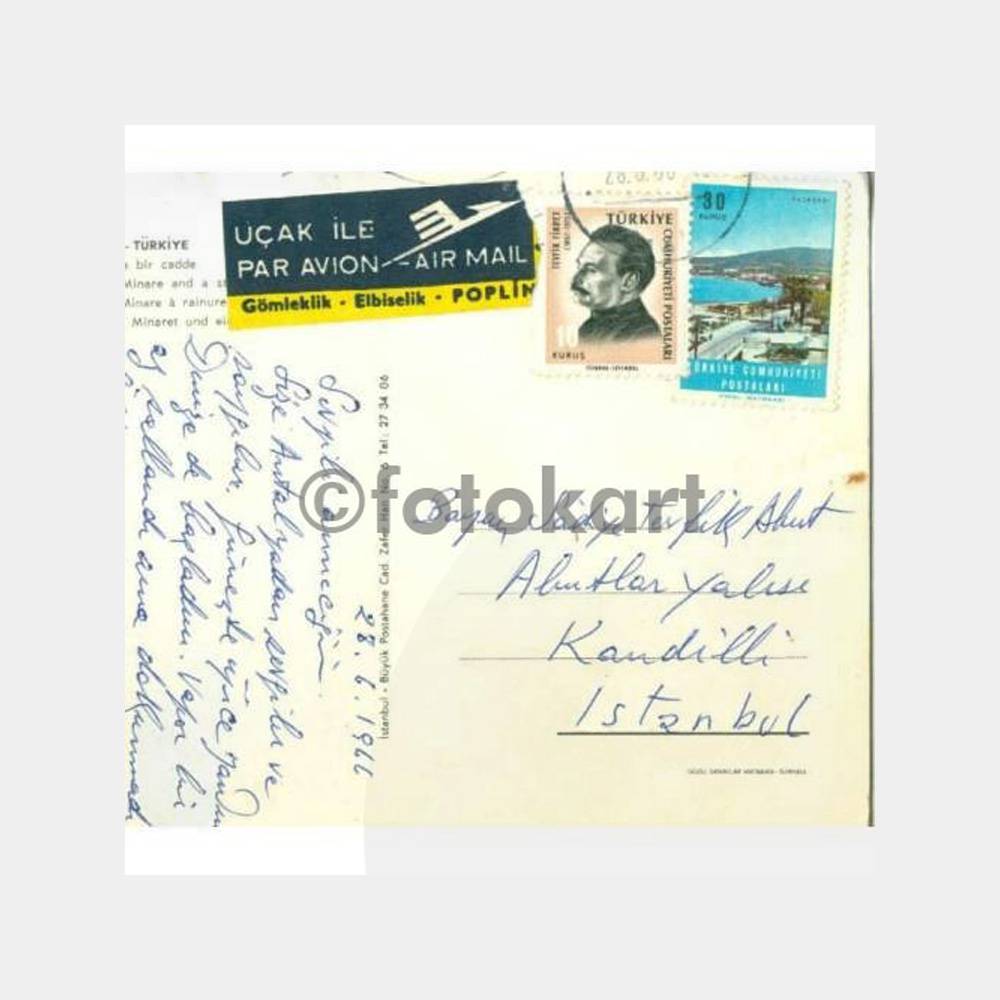 - TÜRKİYE
bir cadde
Minare and a s
Minare à rainure
Minaret und ei
UÇAK İLE
PAR AVION — AIR MAIL
Gömleklik - Elbiselik - POPLİN
28.6.66
TEVFİK FİKRET
TÜRKİYE
CUMHURİYETİ POSTALARI
10
KURUŞ
30
KURUŞ
TÜRKİYE CUMHURİYETİ
POSTALARI
28.6.1966
Sevgili anneciğim.
Size Antalyadan sevgiler ve
saygılar. Güneşte iyice yandım
Denize de başladım. Vapor bir
az sallandı ama dokunmadı
İstanbul - Büyük Postahane Cad. Zafer Han No. 6 Tel: 27 34 06
©fotokart
Bayan Tevfik Abut
Abutlar Yalısı
Kandilli
Istanbul